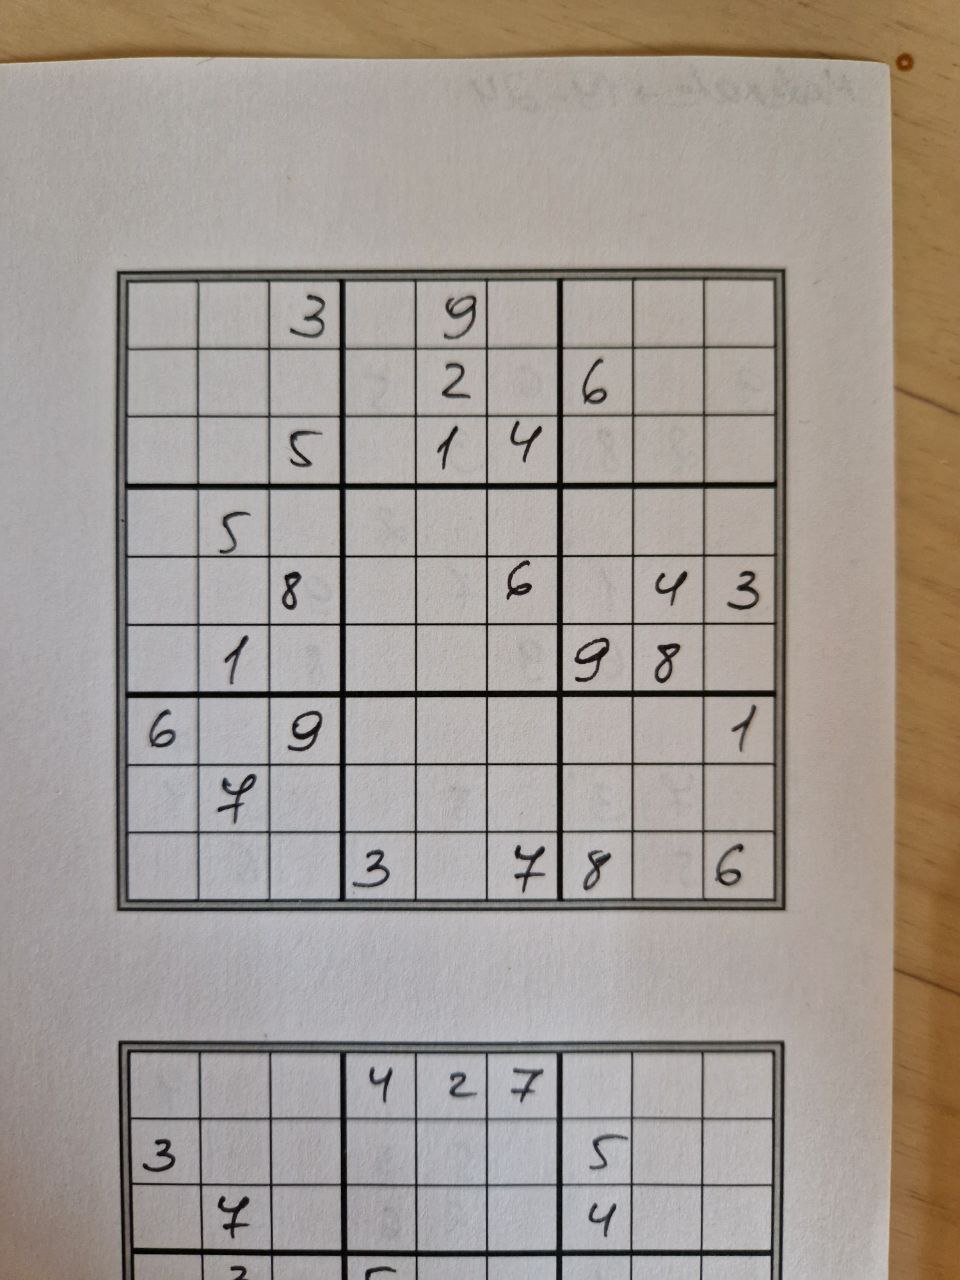 3 9
2 6
5 1 4
5
8 6 4 3
1 9 8
6 9 1
7
3 7 8 6
4 2 7
3 5
7 4